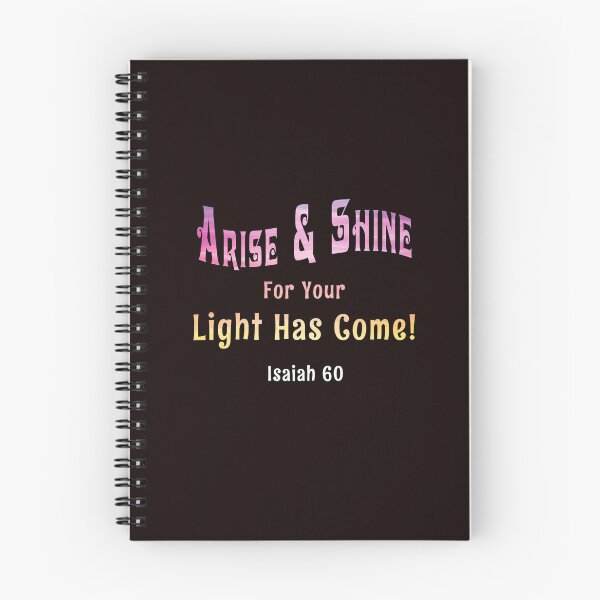 Arise & Shine
For Your
Light Has Come!
Isaiah 60